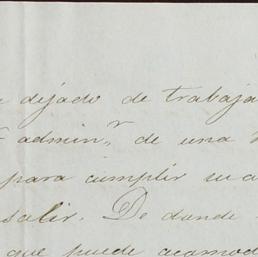 dejado de trabaja
adminr. de una
para cumplir su
salir. De donde
que puede acomod